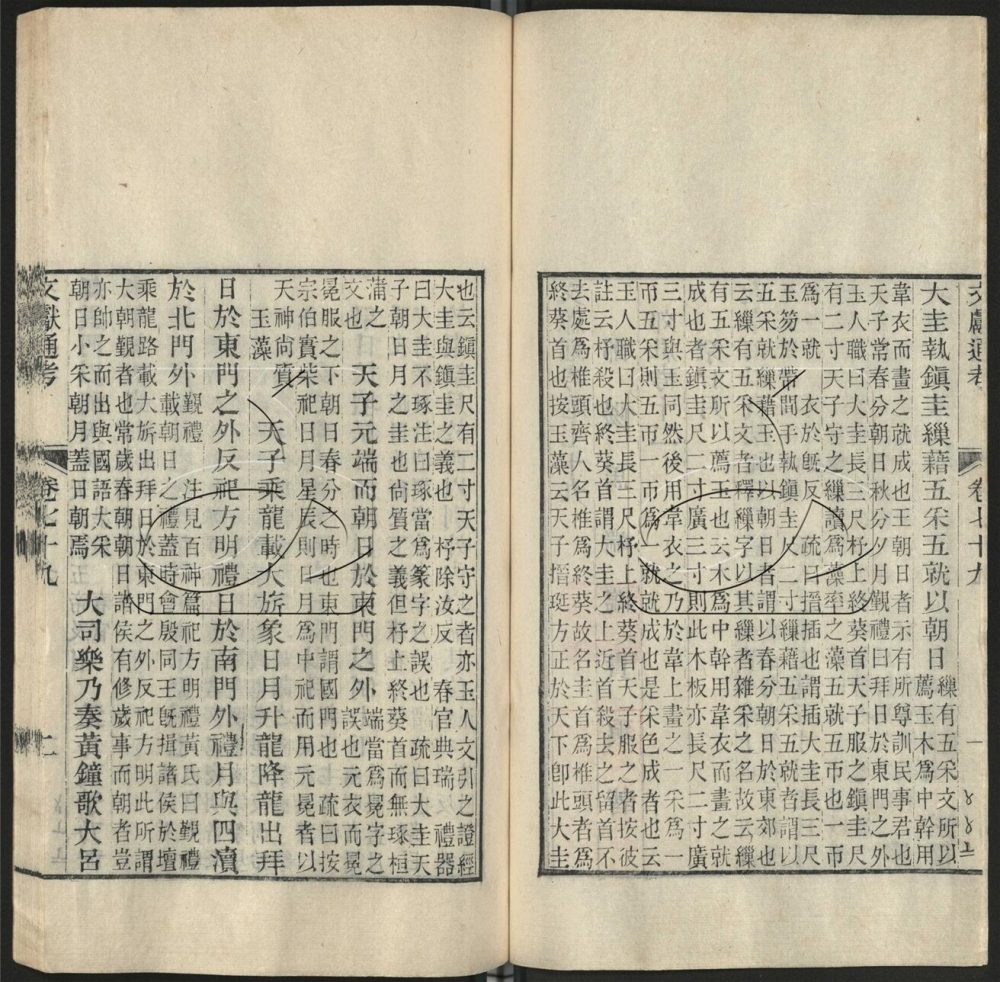 文獻通考　卷七十九　一
大圭執鎮圭繅藉五采五就以朝日
繅有五采文所以
薦玉木爲中幹用
韋衣而畫之就成也王朝日者示有所尊訓民事君也
天子常春分朝日秋分夕月覲禮曰拜日於東門之外
玉人職曰大圭長三尺杼上終葵首天子服之鎮圭尺
有二寸天子守之繅讀爲藻率之藻五就五帀也一帀
爲一就　衣於旣反　疏曰搢插也謂插大圭長三尺
玉笏於帶間手執鎮圭尺二寸繅藉五采五就者謂以
五采就繅藉玉也以朝日者謂以春分朝日於東郊也
云繅有五采文者釋繅字以其繅者雜采之名故云繅
有五采文所以薦玉也云木爲中幹用韋衣而畫之就
成也者鎮圭尺二寸廣三寸則此木板亦長尺二寸廣
三寸與玉同然後用韋衣之乃於韋上畫之一采爲一
帀五采則五帀一帀爲一就就成也是采色成者也云
玉人職曰大圭長三尺杼上終葵首天子服之者按彼
註云杼殺也終葵首謂大圭之上近首殺去之留首不
去處爲椎頭齊人名椎爲終葵故名圭首爲椎頭者爲
終葵首也按玉藻云天子搢珽方正於天下卽此大圭
也云鎮圭尺有二寸天子守之者亦玉人文引之證經
大圭與鎮圭之義也　杼除汝反　春官典瑞　禮器
曰大圭不琢注曰琢當爲篆字之誤也　疏曰大圭天
子朝日月之圭也尚質之義但杼上終葵首而無琢桓
蒲之
文也
天子元端而朝日於東門之外
端當爲冕字之
誤也元衣而冕
冕服之下朝日春分之時也東門謂國門也　疏曰按
宗伯實柴祀日月星辰則日月爲中祀而用元冕者以
天神尚質
玉藻
天子乘龍載大旂象日月升龍降龍出拜
日於東門之外反祀方明禮日於南門外禮月與四瀆
於北門外
覲禮　注見百神篇祀方明禮黃氏曰覲禮
載朝日之禮蓋時會殷同王旣揖諸侯於壇
乘龍路載大旂出拜日於東門之外反祀方明此所謂
大朝覲者也常歲春朝朝日諸侯有修歲事而朝者豈
亦帥之而出與國語大采
朝日小采朝月蓋日朝焉
大司樂乃奏黃鐘歌大呂
文獻通考　卷七十九　二